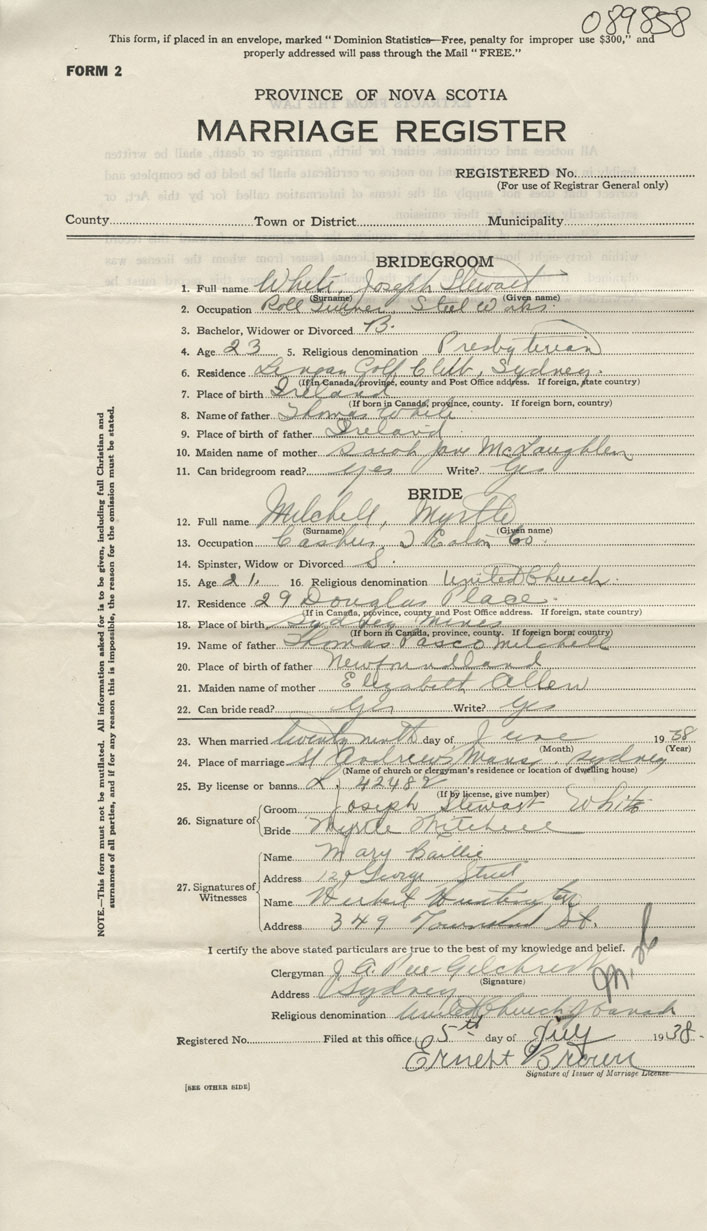 089858
This form, if placed in an envelope, marked " Dominion Statistics—Free, penalty for improper use $300," and
properly addressed will pass through the Mail "FREE."
FORM 2
PROVINCE OF NOVA SCOTIA
MARRIAGE REGISTER
REGISTERED No.
(For use of Registrar General only)
County Town or District Municipality
BRIDEGROOM
1. Full name White, Joseph Stewart
(Surname) (Given name)
2. Occupation Roll Turner Steel Works
3. Bachelor, Widower or Divorced B.
4. Age 23 5. Religious denomination Presbyterian
6. Residence Lingan Golf Club, Sydney.
(If in Canada, province, county and Post Office address. If foreign, state country)
7. Place of birth Ireland
(If born in Canada, province, county. If foreign born, country)
8. Name of father Thomas White
9. Place of birth of father Ireland
10. Maiden name of mother Sarah Jane McLaughlen
11. Can bridegroom read? yes Write? yes
BRIDE
12. Full name Mitchell, Myrtle
(Surname) (Given name)
13. Occupation Cashier, T Eaton Co.
14. Spinster, Widow or Divorced S.
15. Age 21. 16. Religious denomination United Church.
17. Residence 29 Douglas Place.
(If in Canada, province, county and Post Office address. If foreign, state country)
18. Place of birth Sydney Mines
(If born in Canada, province, county. If foreign born, country)
19. Name of father Thomas Pasco Mitchell
20. Place of birth of father Newfoundland
21. Maiden name of mother Elizabeth Allen
22. Can bride read? yes Write? yes
23. When married twenty ninth day of June 1938
(Month) (Year)
24. Place of marriage St Andrew's Manse, Sydney
(Name of church or clergyman's residence or location of dwelling house)
25. By license or banns L, 42482
(If by license, give number)
26. Signature of Groom Joseph Stewart White
Bride Myrtle Mitchell
27. Signatures of Witnesses
Name Mary Baillie
Address George Street
Name Herbert
Address 349 Townsend St.
I certify the above stated particulars are true to the best of my knowledge and belief.
Clergyman J. A. Pue-Gilchrist
(Signature)
Address Sydney
Religious denomination United Church of Canada
Registered No. Filed at this office 5th day of July 1938.
Ernest Brown
Signature of Issuer of Marriage License
[SEE OTHER SIDE]
NOTE.—This form must not be mutilated. All information asked for is to be given, including full Christian and
surnames of all parties, and if for any reason this is impossible, the reason for the omission must be stated.